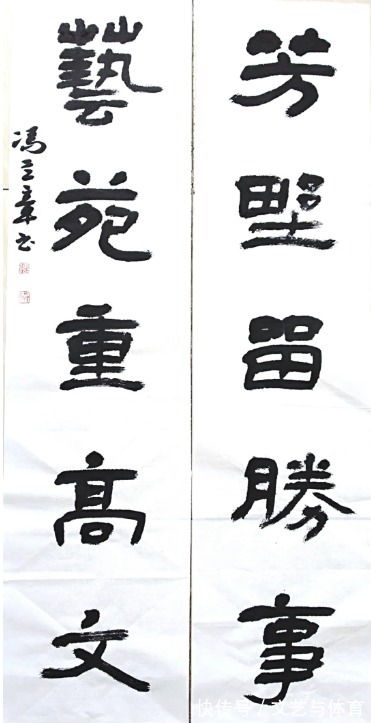 芳野留勝事
藝苑重高文
冯立章书
快传号/文艺与体育